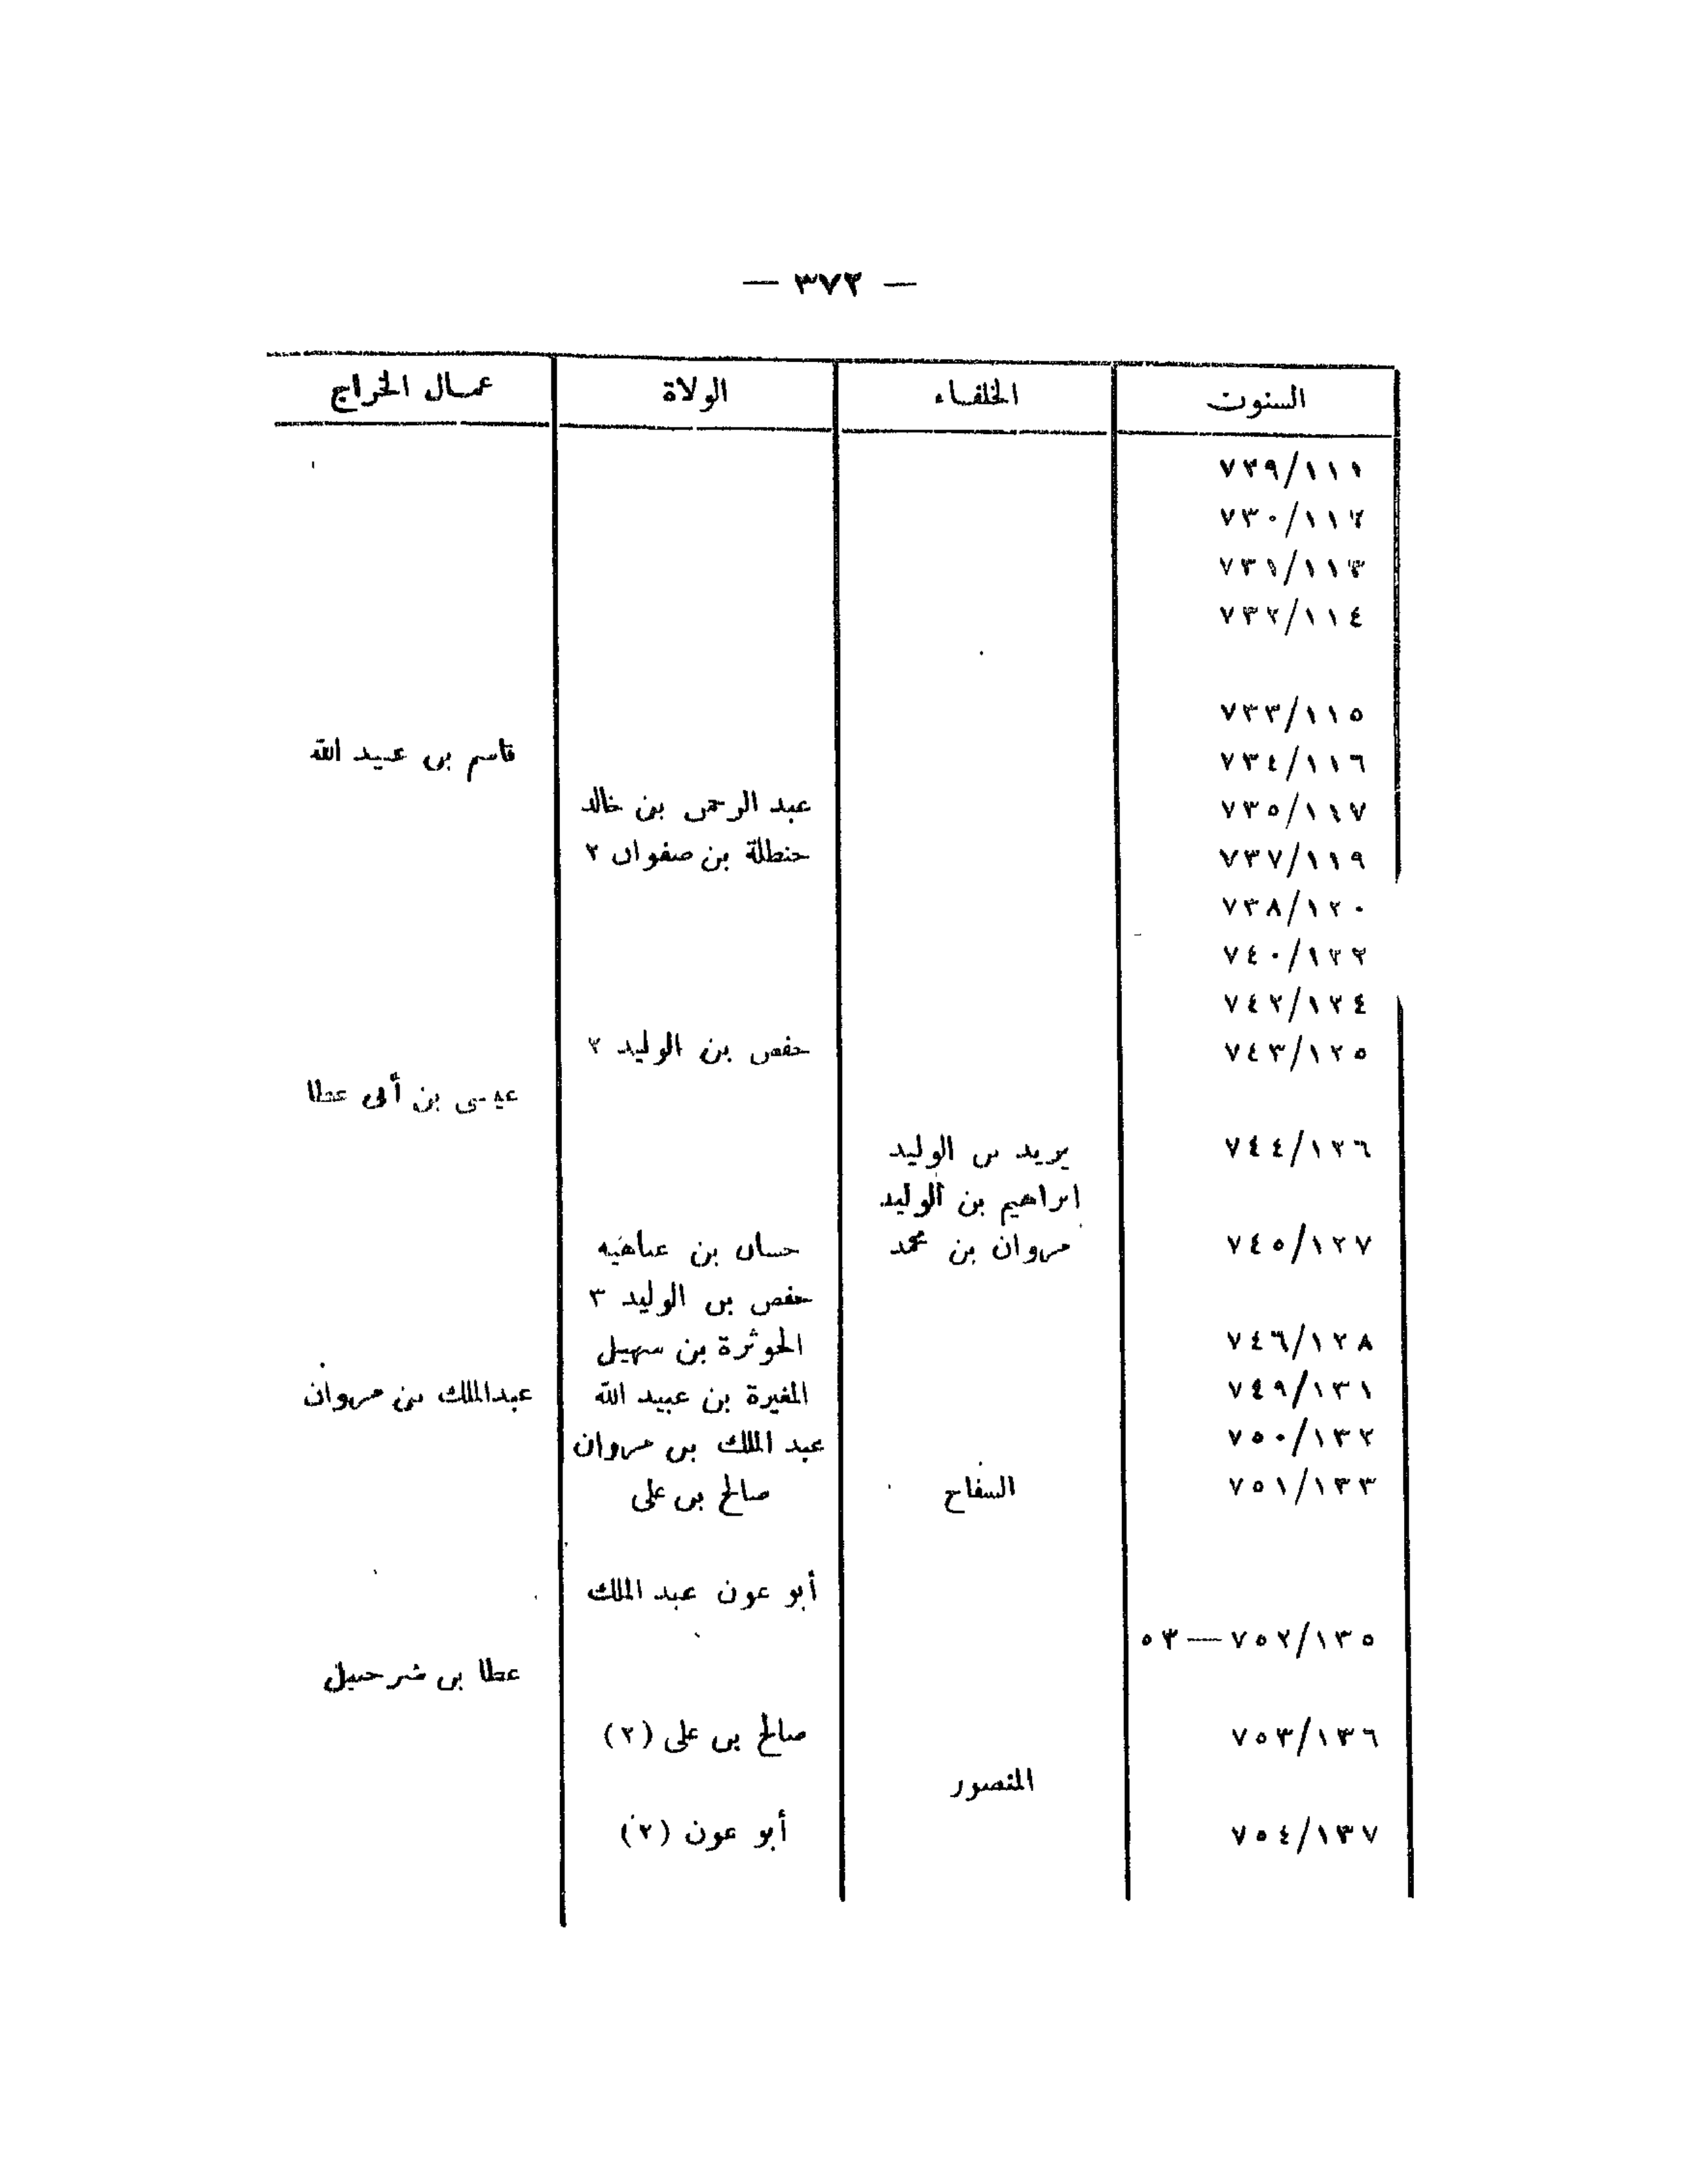 — ٣٧٢ —
السنوت الخلفاء الولاة عمال الخراج
٧٢٩/١١١
٧٣٠/١١٢
٧٣١/١١٣
٧٣٢/١١٤
٧٣٣/١١٥
٧٣٤/١١٦ قاسم بن عبيد الله
٧٣٥/١١٧ عبد الرحمن بن خالد
٧٣٧/١١٩ حنطلة بن صفوان ٢
٧٣٨/١٢٠
٧٤٠/١٢٢
٧٤٢/١٢٤
٧٤٣/١٢٥ حفص بن الوليد ٢
عيسى بن أبى عطا
٧٤٤/١٢٦ يزيد بن الوليد
ابراهيم بن الوليد
٧٤٥/١٢٧ مروان بن محمد حسان بن عتاهيه
حفص بن الوليد ٣
٧٤٦/١٢٨ الحوثرة بن سهيل
٧٤٩/١٣١ المغيرة بن عبيد الله عبدالملك بن مروان
٧٥٠/١٣٢ عبد الملك بن مروان
٧٥١/١٣٣ السفاح صالح بن على
أبو عون عبد الملك
٧٥٢/١٣٥ — ٥٣
عطا بن شرحبيل
٧٥٣/١٣٦ صالح بن على (٢)
المنصور
٧٥٤/١٣٧ أبو عون (٢)